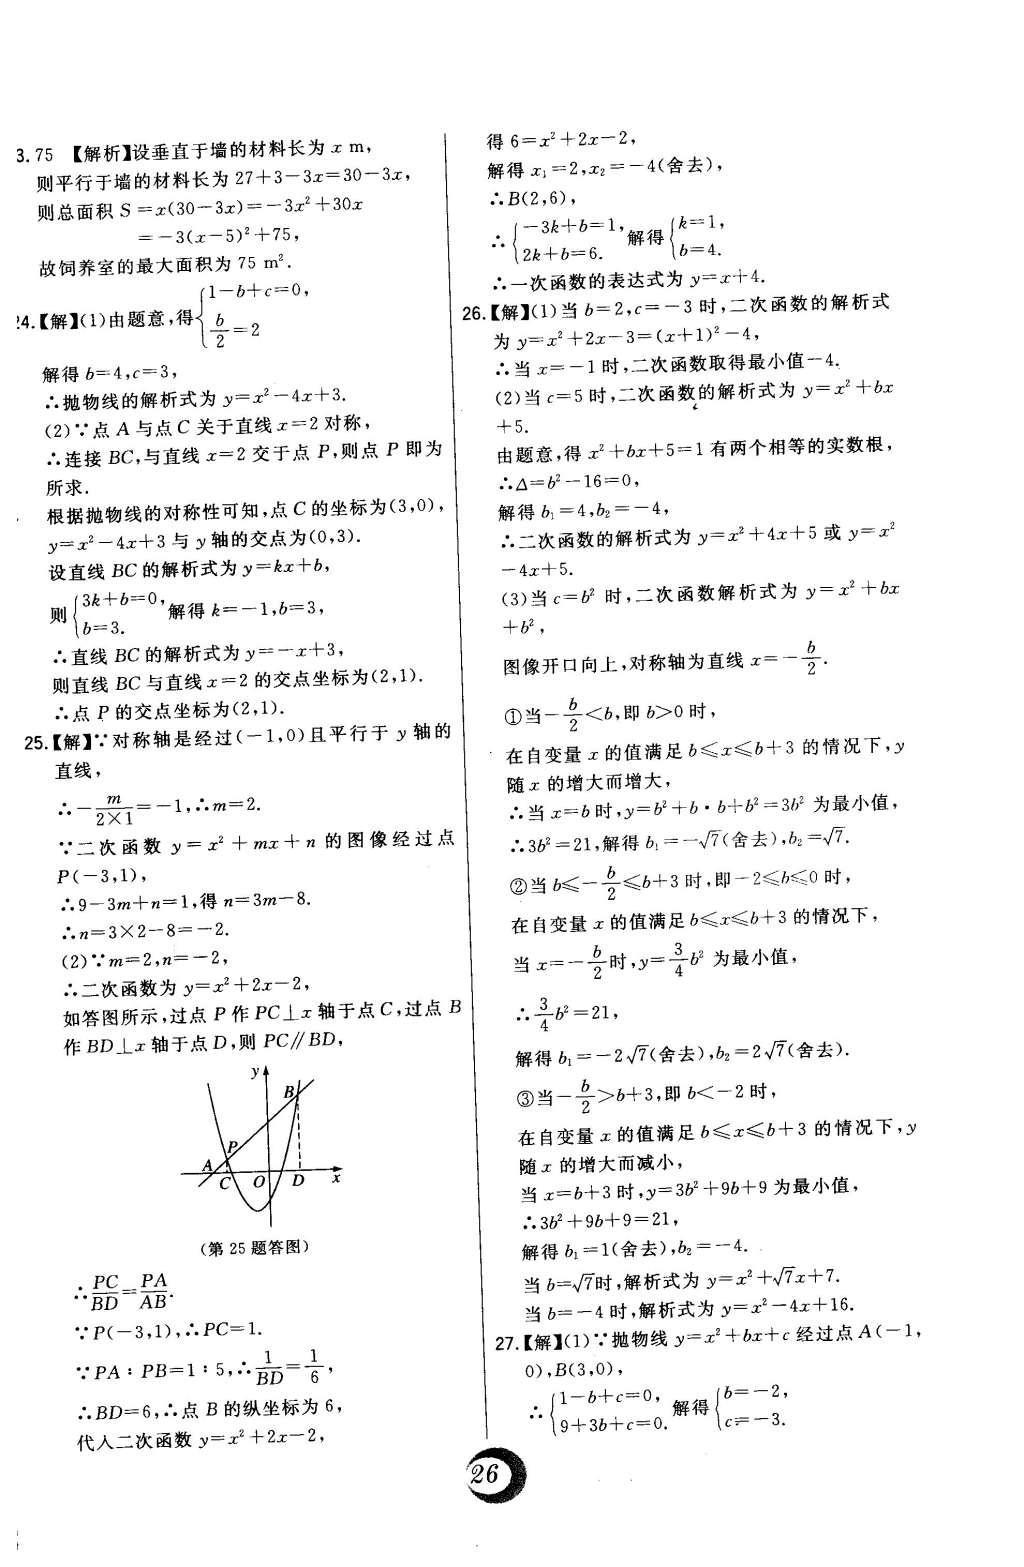 3.75 【解析】设垂直于墙的材料长为 x m,
则平行于墙的材料长为 27+3-3x=30-3x,
则总面积 S=x(30-3x)=-3x²+30x
=-3(x-5)²+75,
故饲养室的最大面积为 75 m².
24.【解】(1)由题意,得{1-b+c=0, b/2=2
解得 b=4,c=3,
∴抛物线的解析式为 y=x²-4x+3.
(2)∵点 A 与点 C 关于直线 x=2 对称,
∴连接 BC,与直线 x=2 交于点 P,则点 P 即为
所求.
根据抛物线的对称性可知,点 C 的坐标为(3,0),
y=x²-4x+3 与 y 轴的交点为(0,3).
设直线 BC 的解析式为 y=kx+b,
则{3k+b=0, b=3. 解得 k=-1,b=3,
∴直线 BC 的解析式为 y=-x+3,
则直线 BC 与直线 x=2 的交点坐标为(2,1).
∴点 P 的交点坐标为(2,1).
25.【解】∵对称轴是经过(-1,0)且平行于 y 轴的
直线,
∴-m/(2×1)=-1,∴m=2.
∵二次函数 y=x²+mx+n 的图像经过点
P(-3,1),
∴9-3m+n=1,得 n=3m-8.
∴n=3×2-8=-2.
(2)∵m=2,n=-2,
∴二次函数为 y=x²+2x-2,
如答图所示,过点 P 作 PC⊥x 轴于点 C,过点 B
作 BD⊥x 轴于点 D,则 PC∥BD,
y
B
P
A
C O D x
(第 25 题答图)
∴PC/BD=PA/AB.
∵P(-3,1),∴PC=1.
∵PA∶PB=1∶5,∴1/BD=1/6,
∴BD=6,∴点 B 的纵坐标为 6,
代入二次函数 y=x²+2x-2,
得 6=x²+2x-2,
解得 x₁=2,x₂=-4(舍去),
∴B(2,6),
∴{-3k+b=1, 2k+b=6. 解得{k=1, b=4.
∴一次函数的表达式为 y=x+4.
26.【解】(1)当 b=2,c=-3 时,二次函数的解析式
为 y=x²+2x-3=(x+1)²-4,
∴当 x=-1 时,二次函数取得最小值-4.
(2)当 c=5 时,二次函数的解析式为 y=x²+bx
+5.
由题意,得 x²+bx+5=1 有两个相等的实数根,
∴Δ=b²-16=0,
解得 b₁=4,b₂=-4,
∴二次函数的解析式为 y=x²+4x+5 或 y=x²
-4x+5.
(3)当 c=b² 时,二次函数解析式为 y=x²+bx
+b²,
图像开口向上,对称轴为直线 x=-b/2.
①当-b/2<b,即 b>0 时,
在自变量 x 的值满足 b≤x≤b+3 的情况下,y
随 x 的增大而增大,
∴当 x=b 时,y=b²+b·b+b²=3b² 为最小值,
∴3b²=21,解得 b₁=-√7(舍去),b₂=√7.
②当 b≤-b/2≤b+3 时,即-2≤b≤0 时,
在自变量 x 的值满足 b≤x≤b+3 的情况下,
当 x=-b/2时,y=3/4b² 为最小值,
∴3/4b²=21,
解得 b₁=-2√7(舍去),b₂=2√7(舍去).
③当-b/2>b+3,即 b<-2 时,
在自变量 x 的值满足 b≤x≤b+3 的情况下,y
随 x 的增大而减小,
当 x=b+3 时,y=3b²+9b+9 为最小值,
∴3b²+9b+9=21,
解得 b₁=1(舍去),b₂=-4.
当 b=√7时,解析式为 y=x²+√7x+7.
当 b=-4 时,解析式为 y=x²-4x+16.
27.【解】(1)∵抛物线 y=x²+bx+c 经过点 A(-1,
0),B(3,0),
∴{1-b+c=0, 9+3b+c=0. 解得{b=-2, c=-3.
26